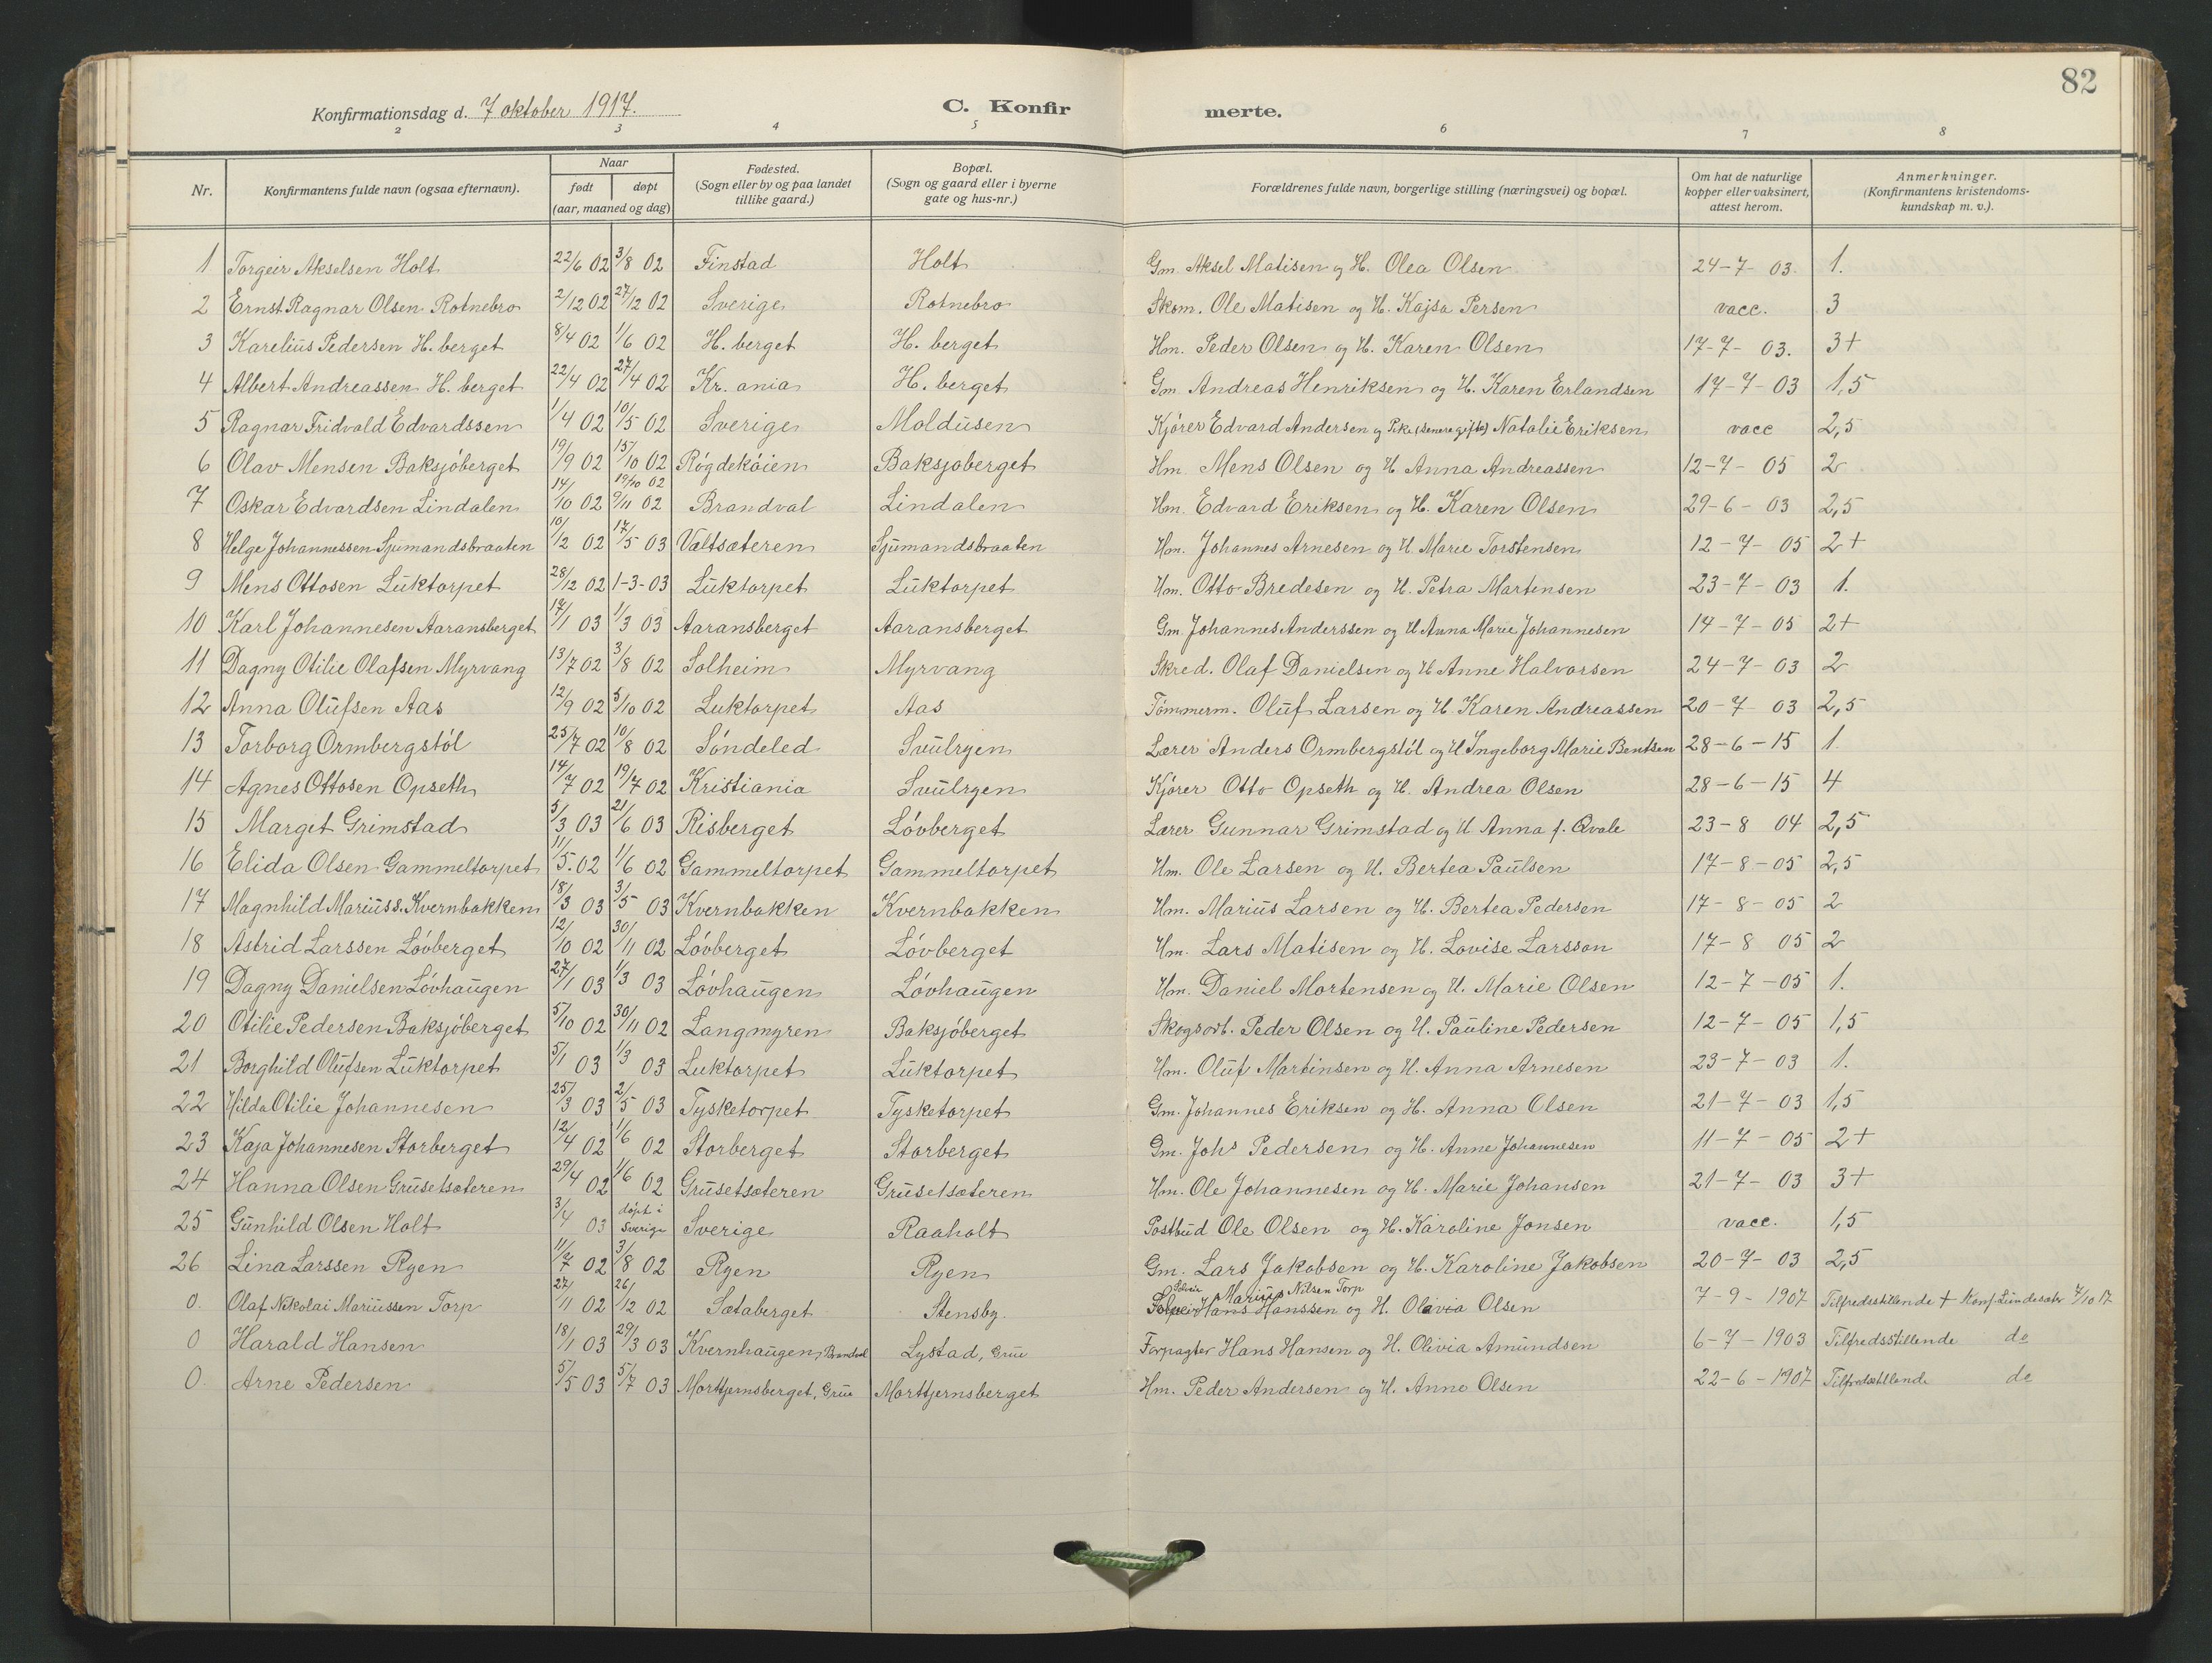 82
Konfirmationsdag d. 7 oktober 1917. C. Konfir merte.
2 3 4 5 6 7 8
Nr. Konfirmantens fulde navn (ogsaa efternavn). Naar født døpt (aar, maaned og dag) Fødested. (Sogn eller by og paa landet tillike gaard.) Bopæl. (Sogn og gaard eller i byerne gate og hus-nr.) Forældrenes fulde navn, borgerlige stilling (næringsvei) og bopæl. Om hat de naturlige kopper eller vaksinert, attest herom. Anmerkninger. (Konfirmantens kristendoms-kundskap m. v.).
1 Torgeir Akselsen Holt 22/6 02 3/8 02 Finstad Holt Gm. Aksel Matisen og H. Olea Olsen 24-7-03. 1.
2 Ernst Ragnar Olsen Rotnebro 2/12 02 27/12 02 Sverige Rotnebro Skom. Ole Matisen og H. Kajsa Persen vacc. 3
3 Karelius Pedersen H. berget 8/4 02 1/6 02 H. berget H. berget Hm. Peder Olsen og H. Karen Olsen 17-7-03. 3+
4 Albert Andreassen H. berget 22/4 02 27/4 02 Kr. ania H. berget Gm. Andreas Henriksen og H. Karen Erlandsen 17-7-03 1,5
5 Ragnar Fridvald Edvardssen 1/4 02 10/5 02 Sverige Moldusen Kjører Edvard Andersen og Pike (senere gifte) Natalie Eriksen vacc 2,5
6 Olav Mensen Baksjöberget 19/9 02 15/10 02 Rögdeköien Baksjoberget Hm. Mens Olsen og H Anna Andreassen 12-7-05 2
7 Oskar Edvardsen Lindalen 14/10 02 19/10 02 9/11 02 Brandval Lindalen Hm. Edvard Eriksen og H. Karen Olsen 29-6-03 2,5
8 Helge Johannessen Sjumandsbraaten 10/2 02 17/5 03 Valtsæteren Sjumandsbraaten Hm. Johannes Arnesen og H. Marie Torstensen 12-7-05 2+
9 Mens Ottosen Luktorpet 28/12 02 1-3-03 Luktorpet Luktorpet Hm. Otto Bredesen og H. Petra Martensen 23-7-03 1.
10 Karl Johannesen Aaransberget 17/1 03 1/3 03 Aaransberget Aaransberget Gm. Johannes Anderssen og H Anna Marie Johannesen 14-7-05 2+
11 Dagny Otilie Olafsen Myrvang 13/7 02 3/8 02 Solheim Myrvang Skred. Olaf Danielsen og H Anne Halvorsen 24-7-03 2
12 Anna Olufsen Aas 12/9 02 5/10 02 Luktorpet Aas Tömmerm. Oluf Larsen og H Karen Andreassen 20-7-03 2,5
13 Torborg Ormbergstöl 25/7 02 10/8 02 Söndeled Svulryen Lærer Anders Ormbergstöl og H Ingeborg Marie Bentsen 28-6-15 1
14 Agnes Ottosen Opseth 14/7 02 19/7 02 Kristiania Svulryen Kjører Otto Opseth og H. Andrea Olsen 28-6-15 4
15 Margit Grimstad 5/3 03 21/6 03 Risberget Lövberget Lærer Gunnar Grimstad og H Anna f. Qvale 23-8 04 2,5
16 Elida Olsen Gammeltorpet 11/5. 02 1/6 02 Gammeltorpet Gammeltorpet Hm. Ole Larsen og H. Bertea Paulsen 17-8-05 2,5
17 Magnhild Marius s. Kvernbakken 18/3 03 3/5 03 Kvernbakken Kvernbakken Hm. Marius Larsen og H. Bertea Pedersen 17-8-05 2
18 Astrid Larssen Lövberget 12/10 02 30/11 02 Lövberget Lövberget Hm. Lars Matisen og H. Lovise Larsson 17-8 05 2
19 Dagny Danielsen Lövhaugen 27/1 03 1/3 03 Lövhaugen Lövhaugen Hm. Daniel Mortensen og H. Marie Olsen 12-7-05 1.
20 Otilie Pedersen Baksjöberget 5/10 02 30/11 02 Langmyren Baksjöberget Skogsarb. Peder Olsen og H. Pauline Pedersen 12-7-05 1,5
21 Borghild Olufsen Luktorpet 5/1 03 1/3 03 Luktorpet Luktorpet Hm. Oluf Martinsen og H. Anna Arnesen 23-7-03 1.
22 Hilda Otilie Johannesen 25/3 03 2/5 03 Tysketorpet Tysketorpet Gm. Johannes Eriksen og H. Anna Olsen 21-7-03 1,5
23 Kaja Johannesen Storberget 12/4 02 1/6 02 Storberget Storberget Gm. Johs Pedersen og H. Anne Johannesen 11-7-05 2+
24 Hanna Olsen Grusetsæteren 29/4 02 1/6 02 Grusetsæteren Grusetsæteren Hm. Ole Johannesen og H. Marie Johansen 21-7-03 3+
25 Gunhild Olsen Holt 3/4 03 döpt i Sverige Sverige Raaholt Postbud Ole Olsen og H. Karoline Jonsen vacc. 1,5
26 Lina Larssen Ryen 11/7 02 3/8 02 Ryen Ryen Gm. Lars Jakobsen og H. Karoline Jakobsen 20-7-03 2,5
0. Olaf Nikolai Mariussen Torp 27/11 02 26/12 02 Sætaberget Stensby. Selveier Marius Nilsen Torp Hans Hanssen og H. Olavia Olsen 7-9-1907 Tilfredsstillende + Konf. Lundersæter 7/10 17
0 Harald Hansen 18/1 03 29/3 03 Kvernhaugen, Brandval Lystad, Grue Forpagter Hans Hansen og H. Olivia Amundsen 6-7-1903 Tilfredsstillende do
0. Arne Pedersen 5/5 03 5/7 03 Morttjernsberget, Grue Morttjernsberget Hm. Peder Andersen og H. Anne Olsen 22-6-1907 Tilfredsstillende do